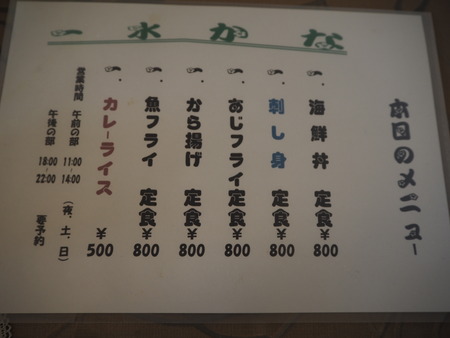 一水かな
本日のメニュー
一. 海鮮丼 定食 ¥800
一. 刺し身 定食 ¥800
一. あじフライ定食 ¥800
一. から揚げ 定食 ¥800
一. 魚フライ 定食 ¥800
一. カレーライス ¥500
営業時間 午前の部 11:00-14:00 (祝、土、日)
午後の部 18:00-22:00 要予約